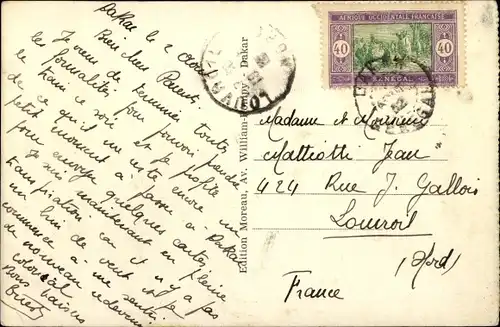 Dakar le 2 Août
Bien chers Parents
Je viens de terminer toutes
les formalités pour pouvoir prendre
le train ce soir et je profite
de ce qu'il me reste encore un
petit moment à passer à Dakar
pour envoyer quelques cartes
Je suis maintenant en pleine
transpiration car il n'y a pas
un brin de vent et je
commence à me sentir
de nouveau redevenu
colonial
Bons baisers
Edition Moreau, Av. William-Ponty, Dakar
AFRIQUE OCCIDENTALE FRANÇAISE
40 40
SÉNÉGAL
Madame et Monsieur
Matteotti Jean
424 Rue J. Gallois
Louroil
(Nord)
France